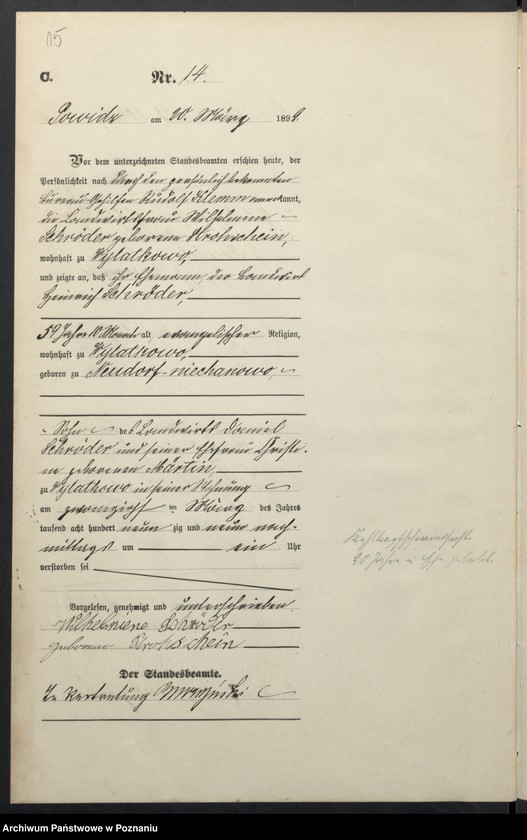 15
C.
Nr. 14.
Powidz am 20. März 1899.
Vor dem unterzeichneten Standesbeamten erschien heute, der
Persönlichkeit nach durch den persönlich bekannten
Bureau Gehilfen Rudolf Klemm anerkannt,
die Landwirthsfrau Wilhelmine
Schröder geborene
wohnhaft zu Wylatkowo,
und zeigte an, daß ihr Ehemann, der Landwirth
Heinrich Schröder,
59 Jahre 10 Monate alt, evangelischer Religion,
wohnhaft zu Wylatkowo,
geboren zu Neudorf-niechanowo,
Sohn des Landwirths Daniel
Schröder und seiner Ehefrau Christi-
ne geborenen Märtin,
zu Wylatkowo in seiner Wohnung
am zwanzigsten März des Jahres
tausend acht hundert neun zig und neun nach-
mittags um ein Uhr
verstorben sei
Vorgelesen, genehmigt und unterschrieben
Wilhelmiene Schröder
geborene
Der Standesbeamte.
In Vertretung
Kehlkopfschwindsucht
20 Jahre in Ehe gelebt.
Archiwum Państwowe w Poznaniu